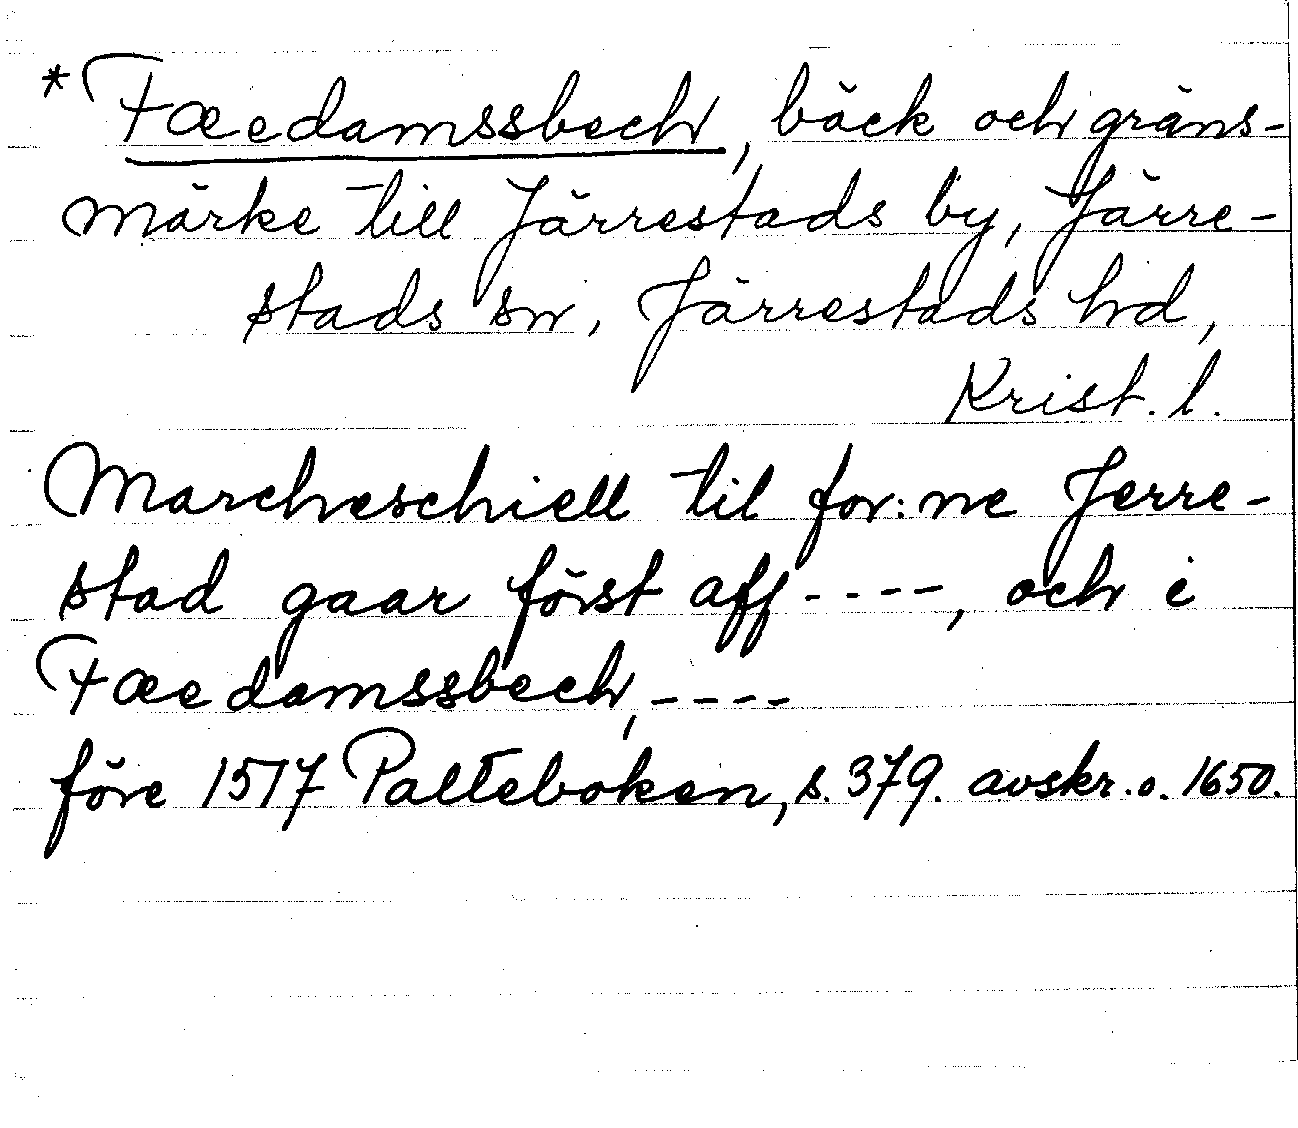 *Fæedamssbech, bäck och gräns-
märke till Järrestads by, Järre-
stads sn, Järrestads hd,
Krist. l.
Marcheschiell til for:ne Jerre-
stad gaar först aff ----, och i
Fæedamssbech, ----
före 1517 Palteboken, s. 379. avskr. o. 1650.